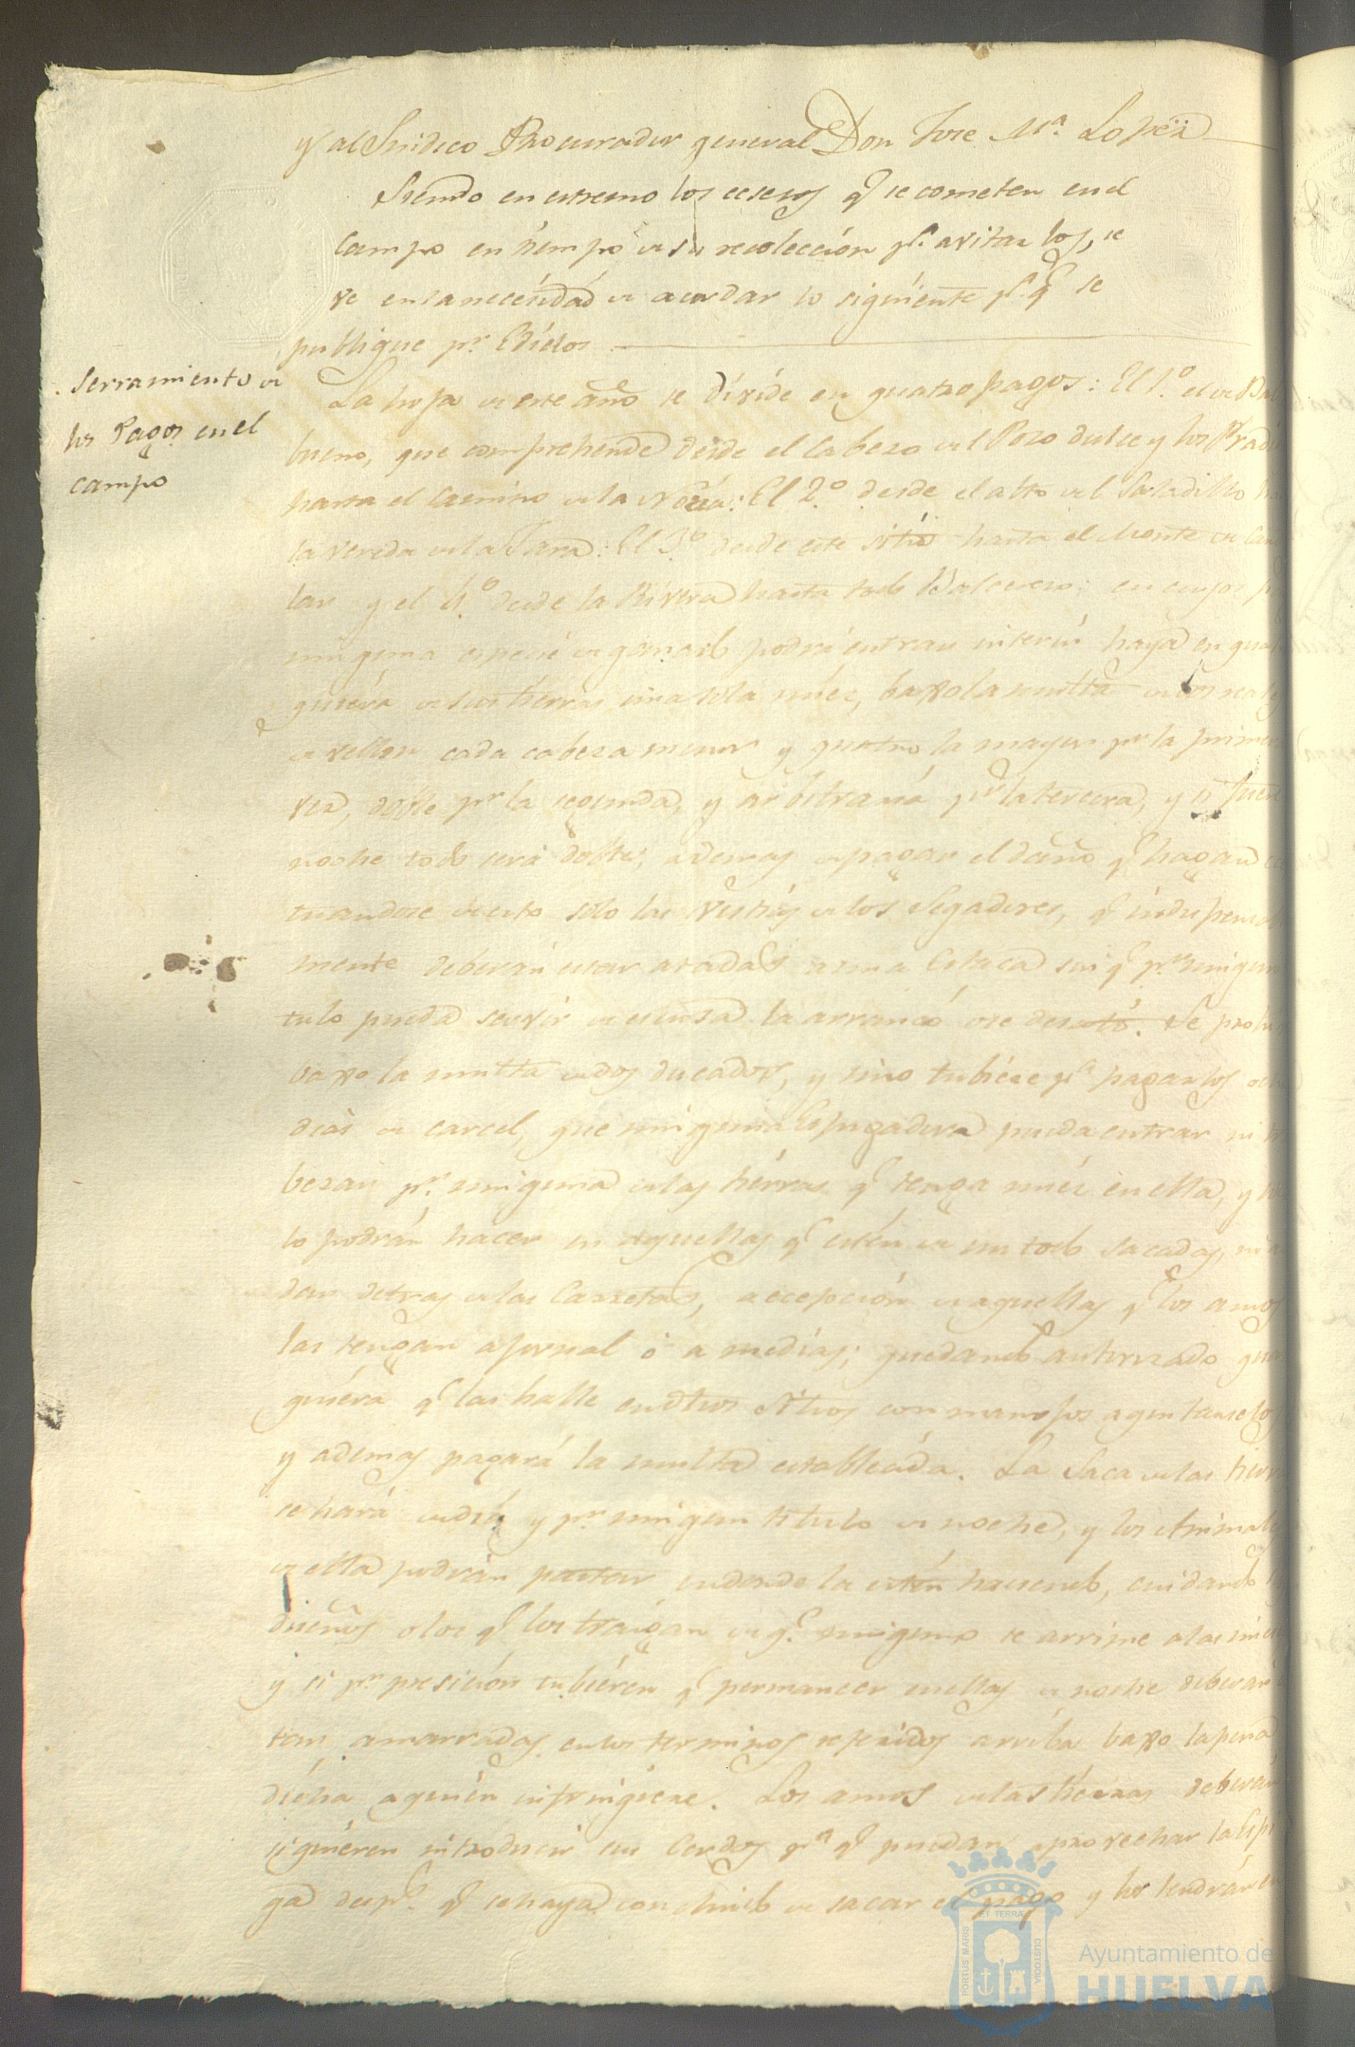 y al Sindico Procurador general Don Jose Ma. Lopez
Siendo en estremo los ecesos q.e se cometen en el
campo en tiempo de su recolección p.a avitar los, se
ve en la necesidad de acordar lo siguiente p.a q.e se
publique p.r Edictos
Serramiento de
los Pagos en el
campo
La hoja de este año se divide en quatro pagos: El 1.o el de
bueno, que comprehende desde el Cabezo del Pozo dulce y los
hasta el Camino de la El 2.o desde el alto del Saladillo
la vereda de la El 3.o desde este sitio hasta el Monte de
y el 4.o desde la Rivera hasta todo en cuyos
ninguna especie de ganado podrá entrar interin haya en qual
quiera de sus tierras una sola miés, baxo la multa de dos reales
de vellon cada cabeza menor y quatro la mayor p.r la primera
vez, doble p.r la segunda, y arbitraria p.r la tercera, y si fuere
noche todo será doble; ademas de pagar el daño q.e hagan
tuandose de esto solo las Vestias de los Segadores, q.e indispensable
mente deberán estar atadas a una Estaca sin q.e p.r ningun
tulo pueda servir de escusa la arrancó o se desató. Se
baxo la multa de dos ducados, y sino tubiere p.a pagarlos
dias de carcel, que ninguna Espigadora pueda entrar ni
bezar p.r ninguna de las tierras q.e tenga miés en ella, y
lo podrán hacer en aquellas q.e estén de un todo sacadas,
dan detras de las Carretas, a ecepción de aquellas q.e los amos
las tengan a jornal ó a medias; quedando autorizado
quiera q.e las halle en otros sitios con manojos a quitarselos
y ademas pagará la multa establecida. La Saca de las
se hará de dia y p.r ningun titulo de noche, y los Animales
de ella podrán pastar en donde la estén haciendo, cuidando
dueños o los q.e los traigan de q.e ninguno se arrime a las
y si p.r presición tubieren q.e permanecer en ellas de noche deberán
tar amarrados en los terminos referidos arriba baxo la pena
dicha a quien infringiere. Los amos de las tierras deberán
si quieren introducir sus Cerdos p.a q.e puedan aprovechar la Espi
ga desp.s q.e se haya concluido de sacar el pago y los tendrán
PORTUS MARIS
ET TERRAE
CUSTODIA
Ayuntamiento de
HUELVA